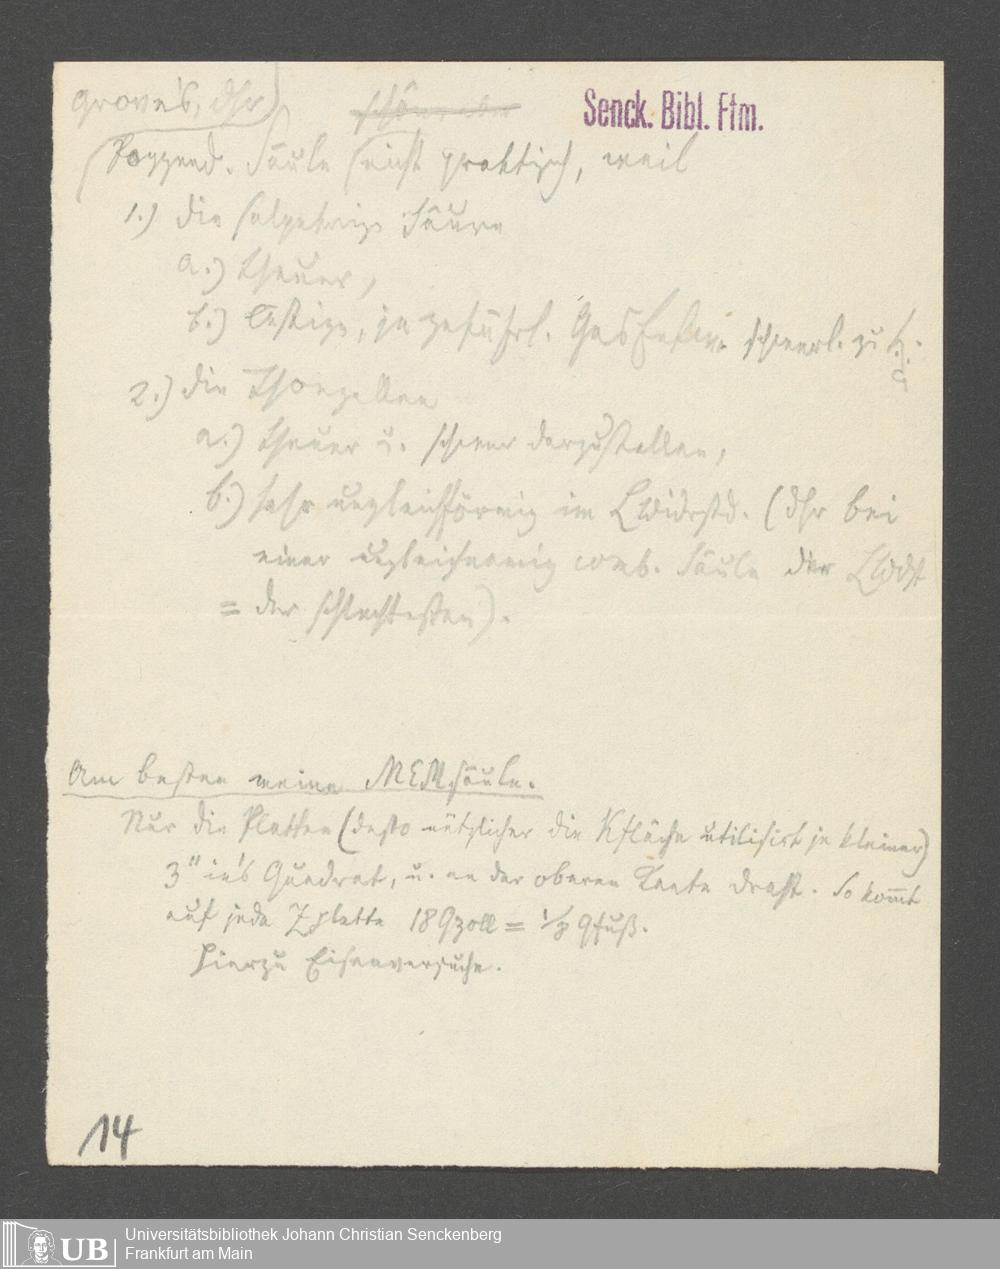 Grove's, dhr
Senck. Bibl. Ffm.
Poggend. Säule nicht praktisch, weil
1.) die salpetrige Säure
a.) theuer,
b.) lästige, ja gefährl. Gas schwerl. zu
2.) die Thonzellen
a.) theuer u. schwer darzustellen,
b.) sehr ungleichförmig im LWidrstd. (dhr bei
einer ungleichnamig comb. Säule der LWdst
= der schlechtesten).
Am besten meine MEMsäule.
Nur die Platten (desto nützlicher die Kfläche utilisirt je kleiner)
3" in's Quadrat, u. an der oberen Kante Draht. So kommt
auf jede Zplatte 18 Qzoll = 1/8 Qfuß.
Hierzu Eisenversuche.
14
UB
Universitätsbibliothek Johann Christian Senckenberg
Frankfurt am Main